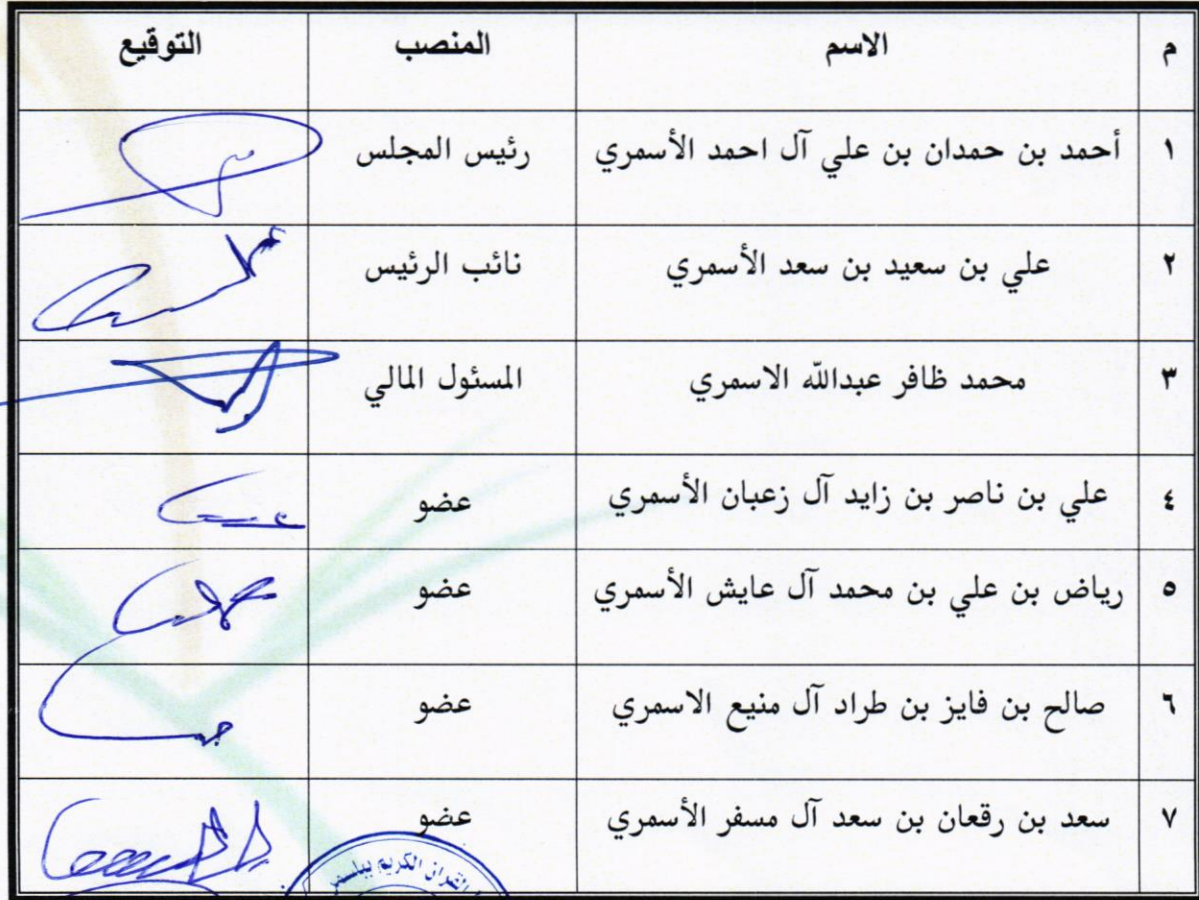 م الاسم المنصب التوقيع
١ أحمد بن حمدان بن علي آل احمد الأسمري رئيس المجلس
٢ علي بن سعيد بن سعد الأسمري نائب الرئيس
٣ محمد ظافر عبدالله الاسمري المسئول المالي
٤ علي بن ناصر بن زايد آل زعبان الأسمري عضو
٥ رياض بن علي بن محمد آل عايش الأسمري عضو
٦ صالح بن فايز بن طراد آل منيع الاسمري عضو
٧ سعد بن رقعان بن سعد آل مسفر الأسمري عضو
القران الكريم